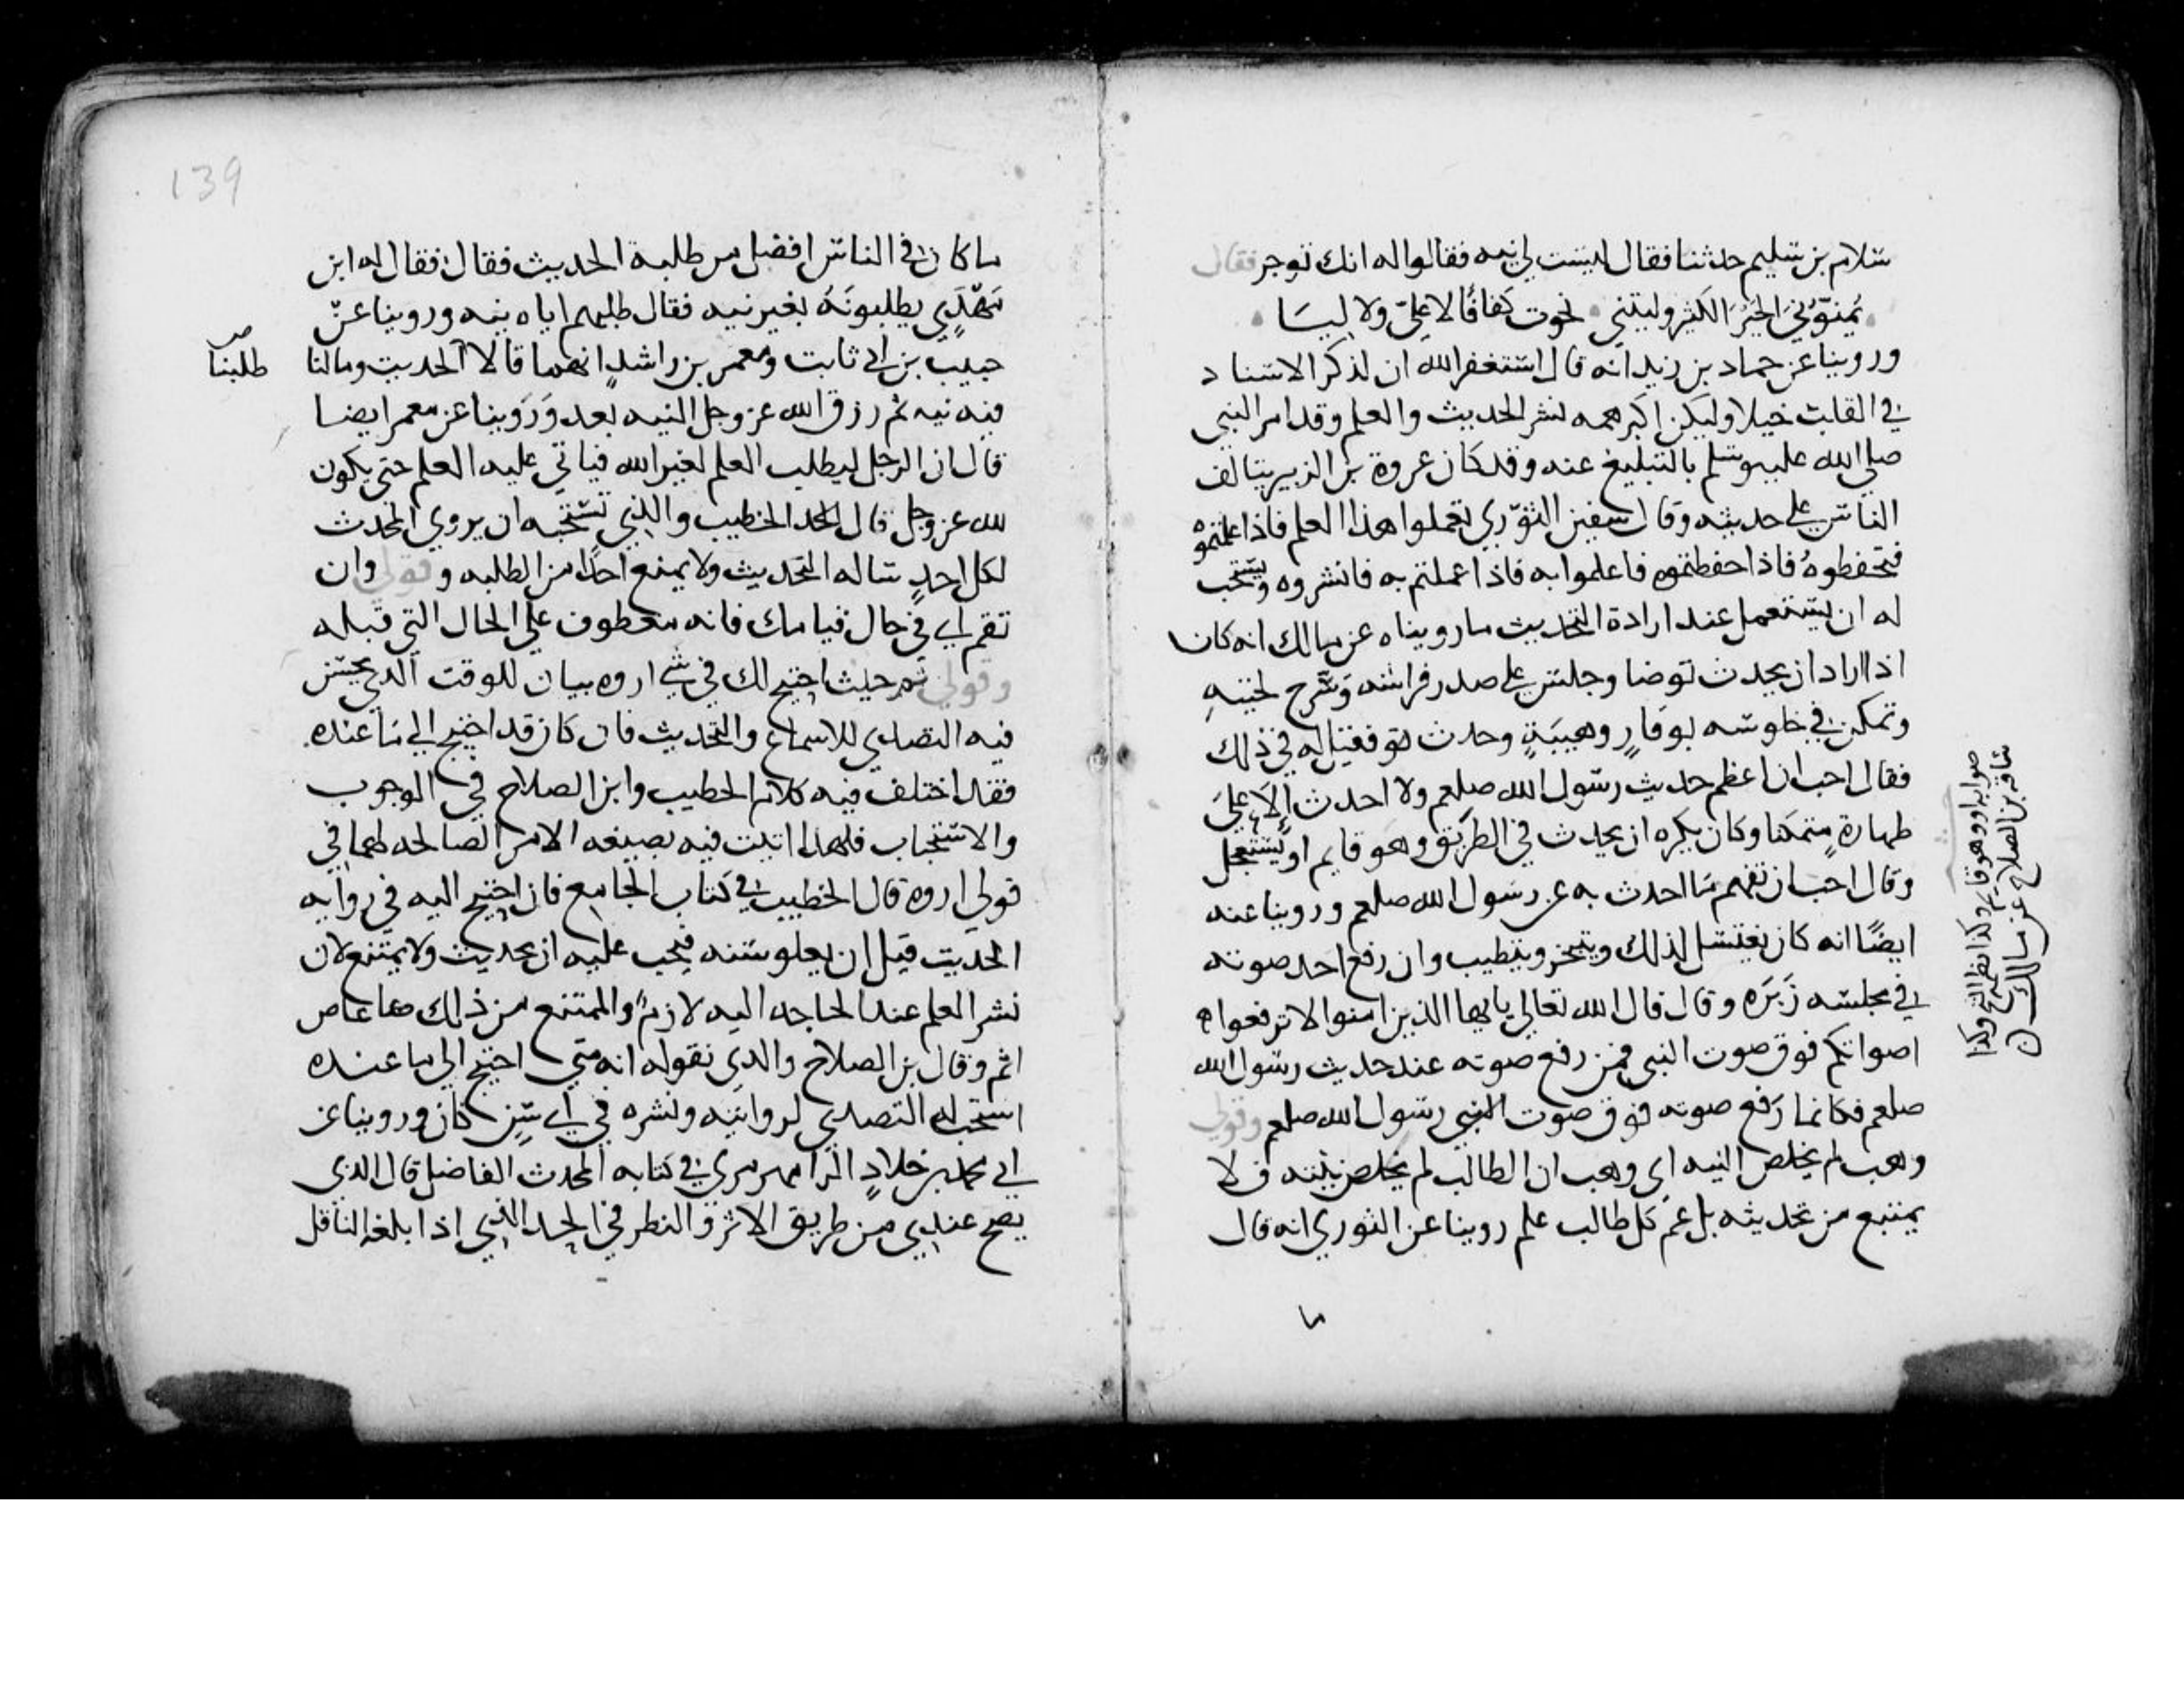 سلام بن سليم حدثنا فقال ليست لي نيه فقالوا له انك توجر فقال
يمنونني الخير الكثير وليتني نجوت كفافا لا علي ولا ليا
وروينا عن حماد بن زيد انه قال استغفر الله ان لذكر الاسناد
في القلب خيلا وليكن اكبر همه نشر الحديث والعلم وقد امر النبي
صلي الله عليه وسلم بالتبليغ عنه وقد كان عروة بن الزبير يتالف
الناس علي حديثه وقال سفين الثوري تعملوا هذا العلم فاذا علمتموه
فتحفظوه فاذا حفظتموه فاعلموا به فاذا عملتم به فانشروه ويستحب
له ان يستعمل عند ارادة التحديث ما رويناه عن مالك انه كان
اذا اراد ان يحدث توضا وجلس علي صدر فراشه وسرح لحيته
وتمكن في جلوسه بوقار وهيبة وحدث فقيل له في ذلك
فقال احب ان اعظم حديث رسول الله صلعم ولا احدث الا علي
طهارة متمكنا وكان يكره ان يحدث في الطريق وهو قايم او يستعجل
وقال احب ان تفهم ما احدث به عن رسول الله صلعم وروينا عنه
ايضا انه كان يغتسل لذلك ويتبخر ويتطيب وان رفع احد صوته
في مجلسه زبره وقال قال الله تعالي يا ايها الذين امنوا لا ترفعوا
اصواتكم فوق صوت النبي فمن رفع صوته عند حديث رسول الله
صلعم فكانما رفع صوته فوق صوت النبي رسول الله صلعم وقولي
وهب لم يخلص النيه اي وهب ان الطالب لم يخلص نيته فلا
يمتنع من تحديثه بل عم كل طالب علم روينا عن الثوري انه قال
صوابه او وهو قايم وكذا نظم الشيخ وكذا
ساقه بن الصلاح عن مالك
139
ما كان في الناس افضل من طلبة الحديث فقال فقال له ابن
مهدي يطلبونه بغير نيه فقال طلبهم اياه نيه وروينا عن
حبيب بن ابي ثابت ومعمر بن راشد انهما قالا الحديث وما لنا
طلبنا
فيه نيه ثم رزق الله عز وجل النيه بعد وروينا عن معمر ايضا
قال ان الرجل ليطلب العلم لغير الله فياتي عليه العلم حتي يكون
لله عز وجل قال الخطيب والذي نستحبه ان يروي المحدث
لكل احد ساله التحديث ولا يمنع احدا من الطلبه وقولي وان
تقم اي في حال قيامك فانه معطوف علي الحال التي قبله
وقولي ثم حيث احتيج لك في شي اروه بيان للوقت الذي يحسن
فيه التصدي للاسماع والتحديث فان كان قد احتيج الي ما عنده
فقد اختلف فيه كلام الخطيب وابن الصلاح في الوجوب
والاستحباب فلهذا اتيت فيه بصيغه الامر الصالحه لهما في
قولي اروه قال الخطيب في كتاب الجامع فان احتيج اليه في روايه
الحديث قبل ان يعلو سنه فيجب عليه ان يحديث ولا يمتنع لان
نشر العلم عند الحاجه اليه لازم والممتنع من ذلك عاص
اثم وقال بن الصلاح والذي نقوله انه متي احتيج الي ما عنده
استحب له التصدي لروايته ونشره في اي سن كان وروينا عن
ابي محمد بن خلاد الرامهرمزي في كتابه المحدث الفاضل قال الذي
يصح عندي من طريق الاثر والنظر في الحد الذي اذا بلغه الناقل